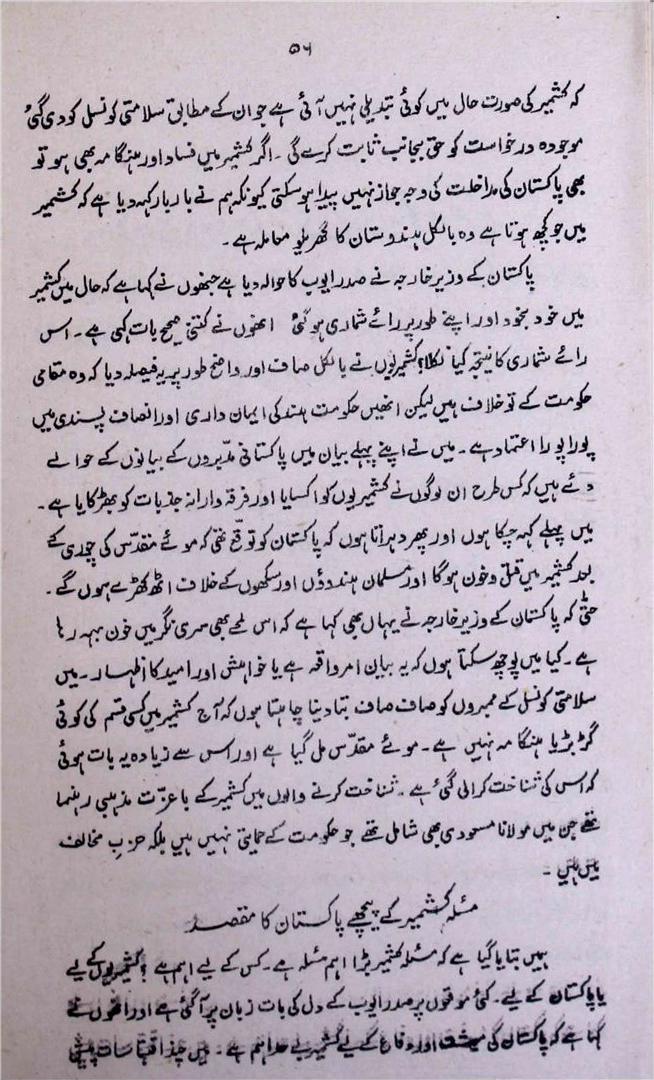 ۵۶
کہ کشمیر کی صورت حال میں کوئی تبدیلی نہیں آئی ہے جو ان کے مطابق سلامتی کونسل کو دی گئی
موجودہ درخواست کو حق بجانب ثابت کرے گی ۔ اگر کشمیر میں فساد اور ہنگامہ بھی ہو تو
بھی پاکستان کی مداخلت کی وجہ جواز نہیں پیدا ہو سکتی کیونکہ ہم نے بار بار کہہ دیا ہے کہ کشمیر
میں جو کچھ ہوتا ہے وہ بالکل ہندوستان کا گھریلو معاملہ ہے ۔
پاکستان کے وزیر خارجہ نے صدر ایوب کا حوالہ دیا ہے جنھوں نے کہا ہے کہ حال میں کشمیر
میں خود بخود اور اپنے طور پر رائے شماری ہو گئی انھوں نے کتنی صحیح بات کہی ہے ۔ اس
رائے شماری کا نتیجہ کیا نکلا؟ کشمیریوں نے بالکل صاف اور واضح طور پر یہ فیصلہ دیا کہ وہ مقامی
حکومت کے تو خلاف ہیں لیکن انھیں حکومت ہند کی ایمان داری اور انصاف پسندی میں
پورا پورا اعتماد ہے ۔ میں نے اپنے پہلے بیان میں پاکستانی مدبروں کے بیانوں کے حوالے
دئے ہیں کہ کس طرح ان لوگوں نے کشمیریوں کو اکسایا اور فرقہ وارانہ جذبات کو بھڑکایا ہے ۔
میں پہلے کہہ چکا ہوں اور پھر دہراتا ہوں کہ پاکستان کو توقع تھی کہ موئے مقدّس کی چوری کے
بعد کشمیر میں قتل و خون ہوگا اور مسلمان ہندوؤں اور سکھوں کے خلاف اٹھ کھڑے ہوں گے ۔
حتّٰی کہ پاکستان کے وزیر خارجہ نے یہاں بھی کہا ہے کہ اس لمحے بھی سری نگر میں خون بہہ رہا
ہے ۔ کیا میں پوچھ سکتا ہوں کہ یہ بیان امر واقعہ ہے یا خواہش اور امید کا اظہار ۔ میں
سلامتی کونسل کے ممبروں کو صاف صاف بتا دینا چاہتا ہوں کہ آج کشمیر میں کسی قسم کی کوئی
گڑبڑ یا ہنگامہ نہیں ہے ۔ موئے مقدّس مل گیا ہے اور اس سے زیادہ یہ بات ہوئی
کہ اس کی شناخت کرالی گئی ہے ۔ شناخت کرنے والوں میں کشمیر کے باعزّت مذہبی رہنما
تھے جن میں مولانا مسعودی بھی شامل تھے جو حکومت کے حمایتی نہیں ہیں بلکہ حزب مخالف
میں ہیں ۔
مسئلہ کشمیر کے پیچھے پاکستان کا مقصد
ہمیں بتایا گیا ہے کہ مسئلہ کشمیر بڑا اہم مسئلہ ہے ۔ کس کے لیے اہم ہے ؟ کشمیریوں کے لیے
یا پاکستان کے لیے ۔ کئی موقعوں پر صدر ایوب کے دل کی بات زبان پر آگئی ہے اور انھوں نے
کہا ہے کہ پاکستان کی معیشت اور دفاع کے لیے کشمیر بے حد اہم ہے ۔ میں چند اقتباسات پیش